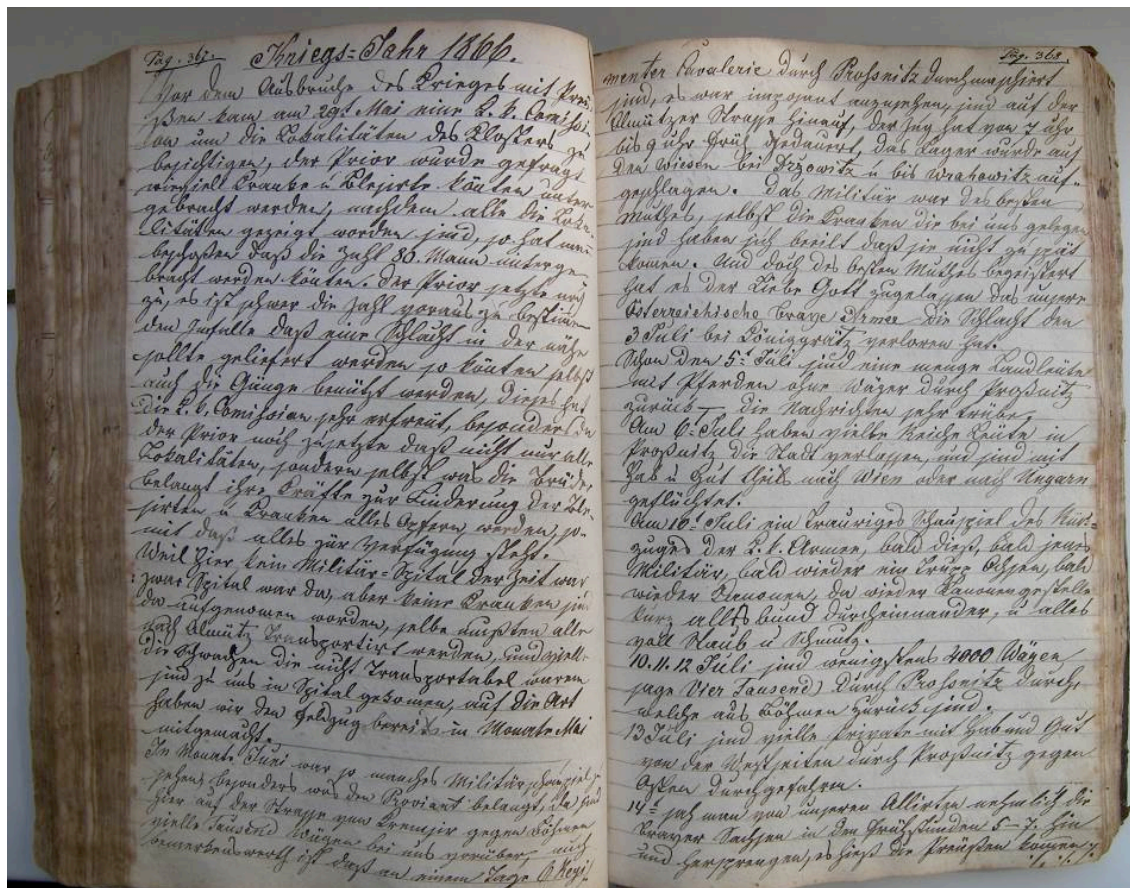 Pag. 367.
Kriegs-Jahr 1866.
Vor dem Ausbruche des Krieges mit Preu-
ßen kam am 29t Mai eine k. k. Comißi-
on um die Lokalitäten des Klosters zu
besichtigen, der Prior wurde gefragt
wieviell Kranke u. Bleßirte könten unter
gebracht werden, nachdem alle die Loka-
litäten gezeigt worden sind, so hat man
beschoßen daß die Zahl 80 Mann unterge
bracht werden könten. Der Prior setzte noch
zu, es ist schwer die Zahl voraus zu bestimen
den imfalle daß eine Schlacht in der nähe
sollte geliefert werden so könten selbst
auch die Gänge benützt werden, dieses hat
die k. k. Comißion sehr erfreut, besonders da
der Prior noch zusetzte daß nicht nur alle
Lokalitäten, sondern selbst was die Brüder
belangt ihre Kräfte zur Linderung der Ble-
sirten u. Kranken alles Opfern werden, so-
mit daß alles zur verfügung steht.
Weil hier kein Militär-Spital derzeit war
zwar Spital war da, aber keine Kranken sind
da aufgenomen worden, selbe mußten alle
nach Olmütz Transportirt werden, und viell
die Schwachen die nicht Transportabel waren
sind zu uns in Spital gekomen, auf die Art
haben wir den Feldzug bereits in Monate Mai
mitgemacht.
Im Monate Juni war so manches Militärschauspiel zu
sehen, besonders was den Proviant belangt, da sind
hier auf der Strasse von Kremsir gegen Böhmen
vielle Tausend Wägen bei uns vorüber, auch
bemerkenswerth ist daß an einem Tage 6 Regi-
Pag. 368.
menter Cavalerie durch Proßnitz durchmaschiert
sind, es war imposant anzusehen, sind auf der
Olmützer Strasse hinauf, der Zug hat von 7 uhr
bis 9 uhr Früh gedauert, das Lager wurde auf
den Wiesen bei Držowitz u. bis Wrahowitz auf-
geschlagen. Das Militär war des besten
Muthes, selbst die Kranken die bei uns gelegen
sind haben sich beeilt daß sie nicht zu spät
komen. Und doch des besten Muthes begeistert
hat es der Liebe Gott zugelassen das unsere
österreichische brave Armee die Schlacht den
3 Juli bei Königgrätz verloren hat.
Schon den 5t Juli sind eine menge Landleute
mit Pferden ohne Wägen durch Proßnitz
zurück – die Nachrichten sehr trübe,
Am 6t Juli haben vielle Reiche Leute in
Proßnitz die Stadt verlassen, und sind mit
Hab u. Gut theils nach Wien oder nach Ungarn
geflüchtet.
Am 10t Juli ein trauriges Schauspiel des Rük-
zuges der k. k. Armee, bald dieß, bald jenes
Militär, bald wieder ein Trupp Ochsen, bald
wieder Kanonen, da wieder Kanonengestelle
kurz alles bund durcheinander, u. alles
voll Staub u. Schmutz.
10. 11. 12 Juli sind wenigstens 4000 Wägen
sage Vier Tausend) durch Proßnitz durch,
welche aus Böhmen zurück sind.
13 Juli sind vielle Private mit Hab und Gut
von der Westseiten durch Proßnitz gegen
Osten durchgefahren.
14t sah man von unseren Allirten nehmlich die
Sachsen in den Frühstunden 5–7. hin
und hersprengen, es hieß die Preußen komen